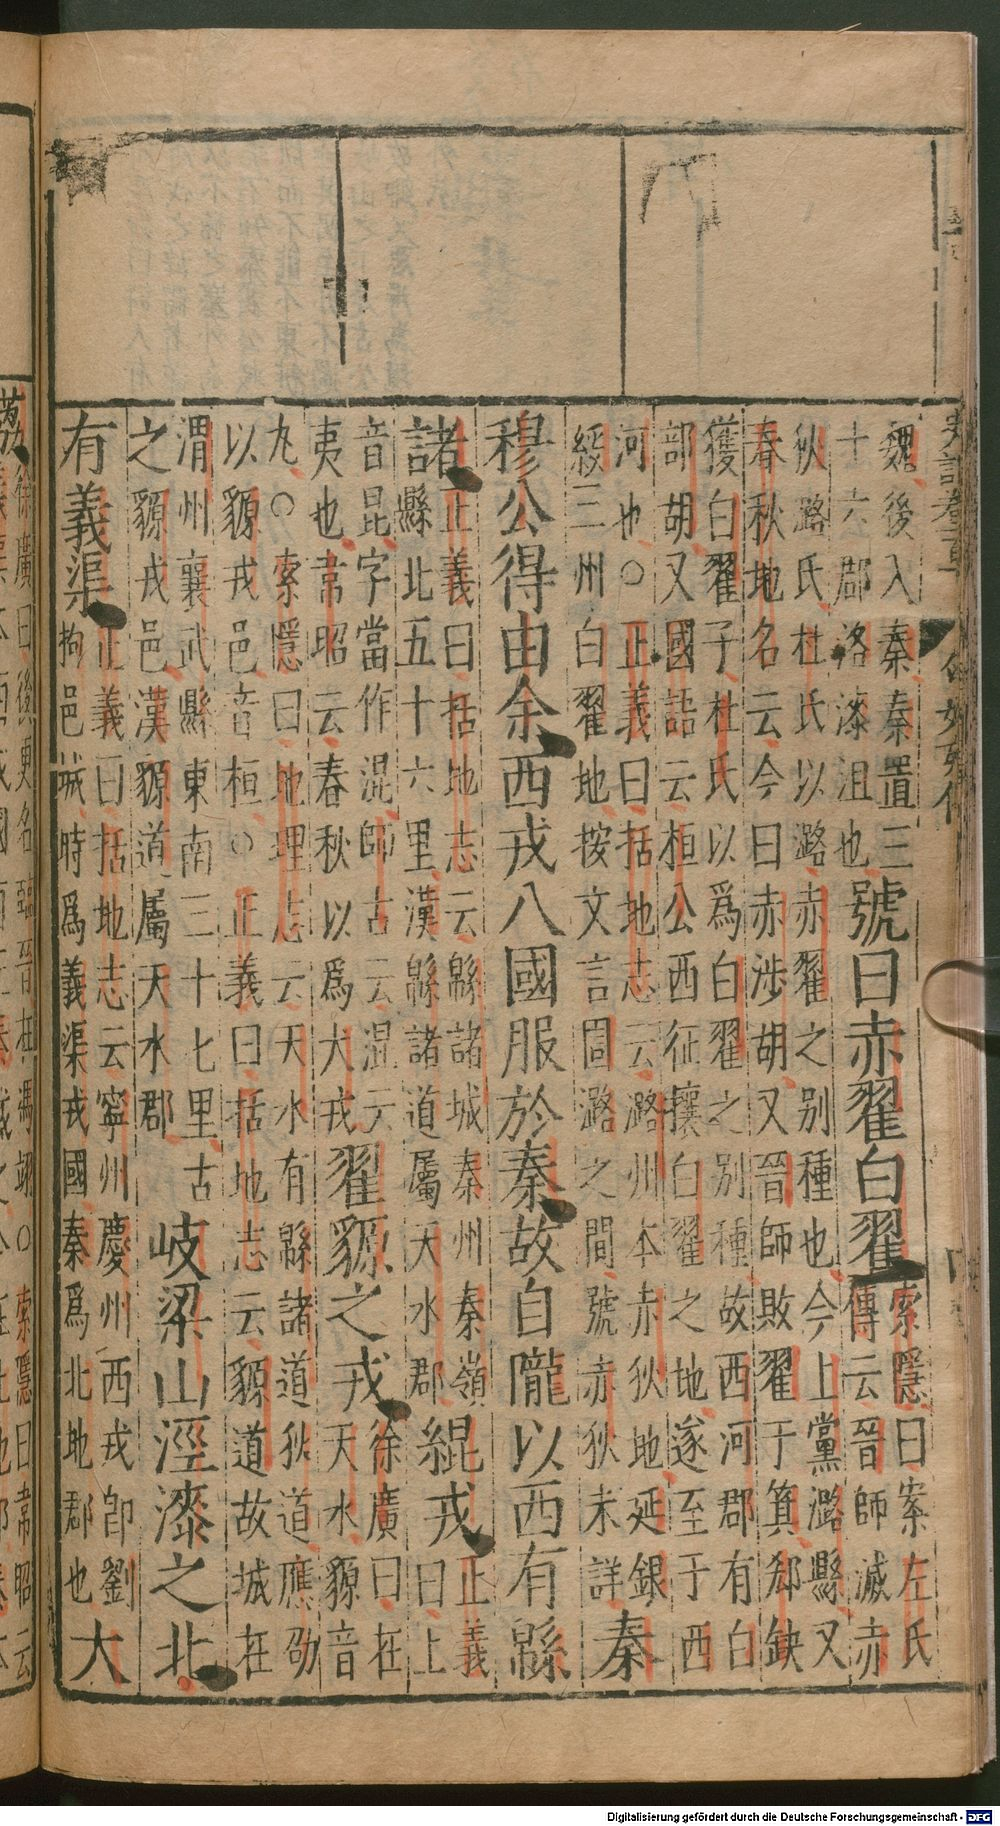 魏後入秦秦置三
十六郡洛漆沮也
號曰赤翟白翟
索隱曰案左氏
傳云晉師滅赤
秋潞氏杜氏以潞赤翟之别種也今上黨潞縣又
春秋地名云今曰赤涉胡又晉師敗翟于箕郤缺
獲白翟子杜氏以爲白翟之别種故西河郡有白
部胡又國語云桓公西征攘白翟之地遂至于西
河也○正義曰括地志云潞州本赤狄地延銀
綏三州白翟地按文言圁潞之間號赤狄未詳
秦
穆公得由余西戎八國服於秦故自隴以西有緜
諸
正義曰括地志云緜諸城秦州秦嶺
縣北五十六里漢緜諸道屬天水郡
緄戎
正義
曰上
音昆字當作混師古云混云
夷也韋昭云春秋以爲犬戎
翟豲之戎
徐廣曰在
天水豲音
丸○索隱曰地理志云天水有緜諸道狄道應劭
以豲戎邑音桓○正義曰括地志云豲道故城在
渭州襄武縣東南三十七里古
之豲戎邑漢豲道屬天水郡
岐梁山涇漆之北
有義渠
正義曰括地志云寧州慶州西戎卽劉
拘邑城時爲義渠戎國秦爲北地郡也
大
Digitalisierung gefördert durch die Deutsche Forschungsgemeinschaft - DFG